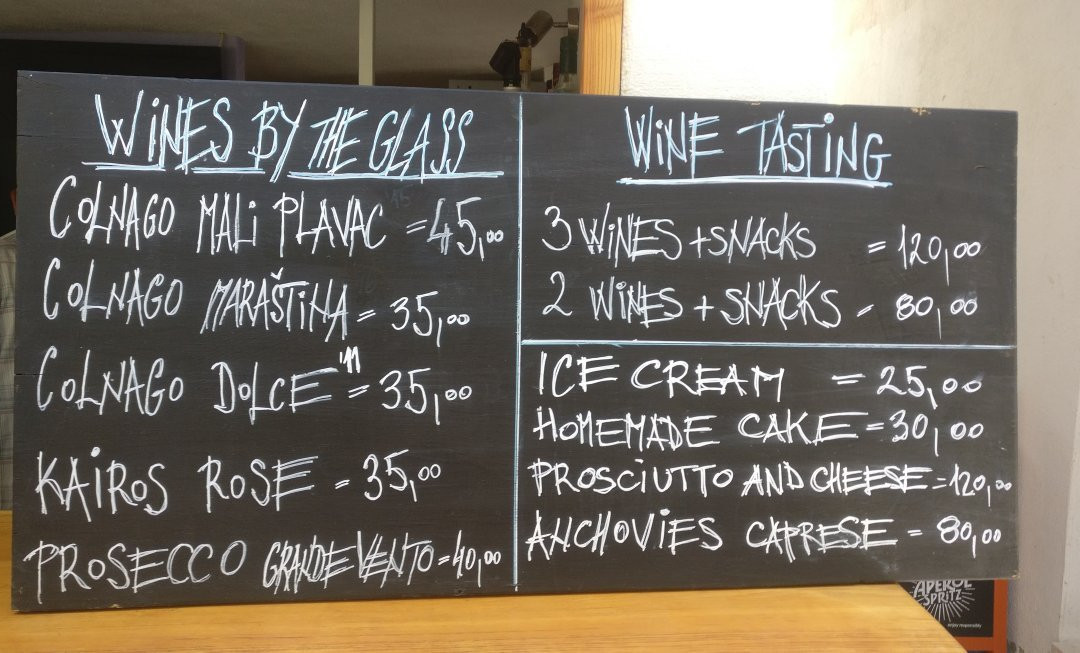 WINES BY THE GLASS
COLNAGO MALI PLAVAC = 45,00
COLNAGO MARAŠTINA = 35,00
COLNAGO DOLCE '11 = 35,00
KAIROS ROSE = 35,00
PROSECCO GRANDEVENTO = 40,00
WINE TASTING
3 WINES + SNACKS = 120,00
2 WINES + SNACKS = 80,00
ICE CREAM = 25,00
HOMEMADE CAKE = 30,00
PROSCIUTTO AND CHEESE = 120,00
ANCHOVIES CAPRESE = 80,00
APEROL
SPRITZ
enjoy responsibly